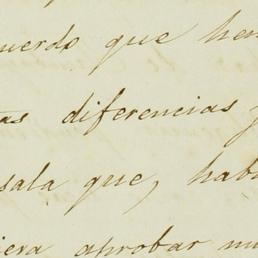 cuerdo que hem
tas diferencias y
sala que, habi
iera aprobar nu